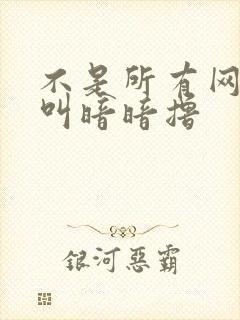 不是所有网
叫暗暗撸
银河惡霸